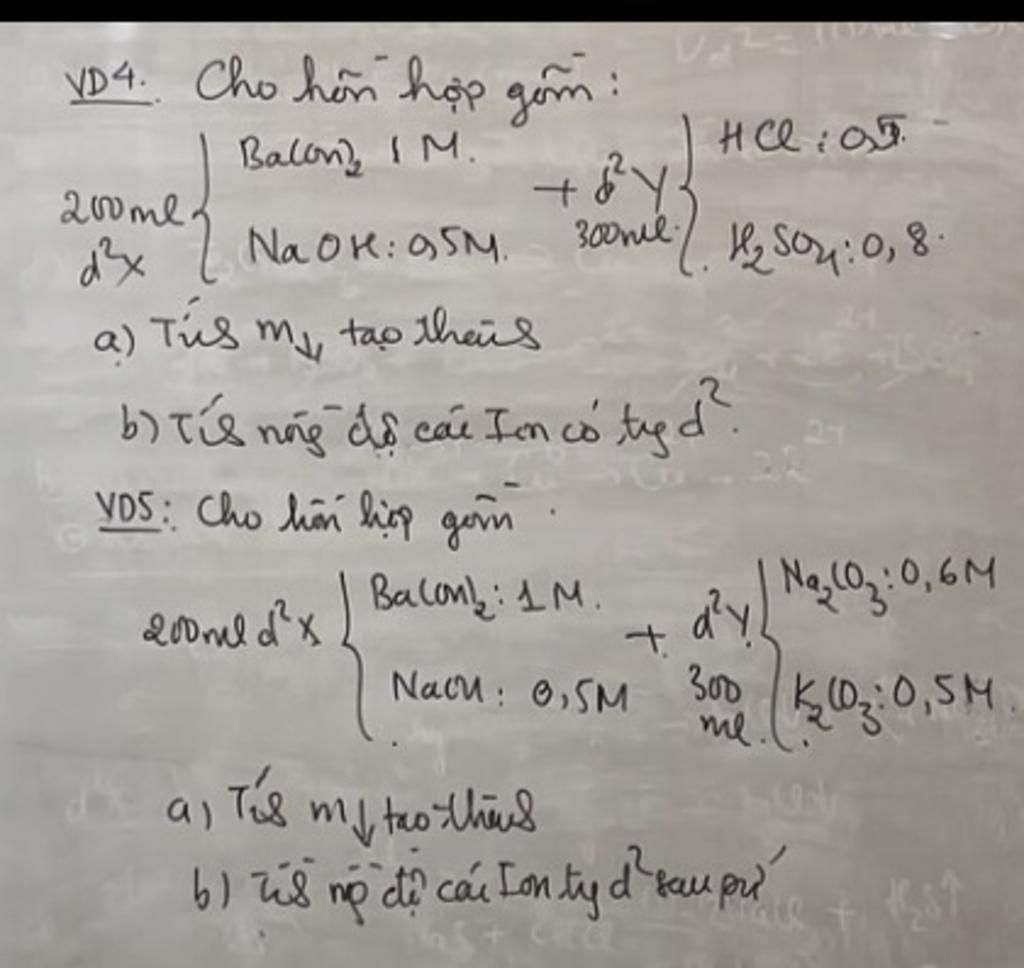 VD4. Cho hỗn hợp gồm:
200ml d²X { Ba(OH)₂ 1M. NaOH: 0,5M. + d²Y 300ml. { HCl: 0,5. H₂SO₄: 0,8.
a) Tính m↓ tạo thành
b) Tính nồng độ các Ion có tg d².
VD5: Cho hỗn hợp gồm.
200ml d²X { Ba(OH)₂: 1M. NaOH: 0,5M + d²Y. 300 ml. { Na₂CO₃: 0,6M K₂CO₃: 0,5M.
a) Tính m↓ tạo thành
b) Tính độ các Ion tg d² sau pứ